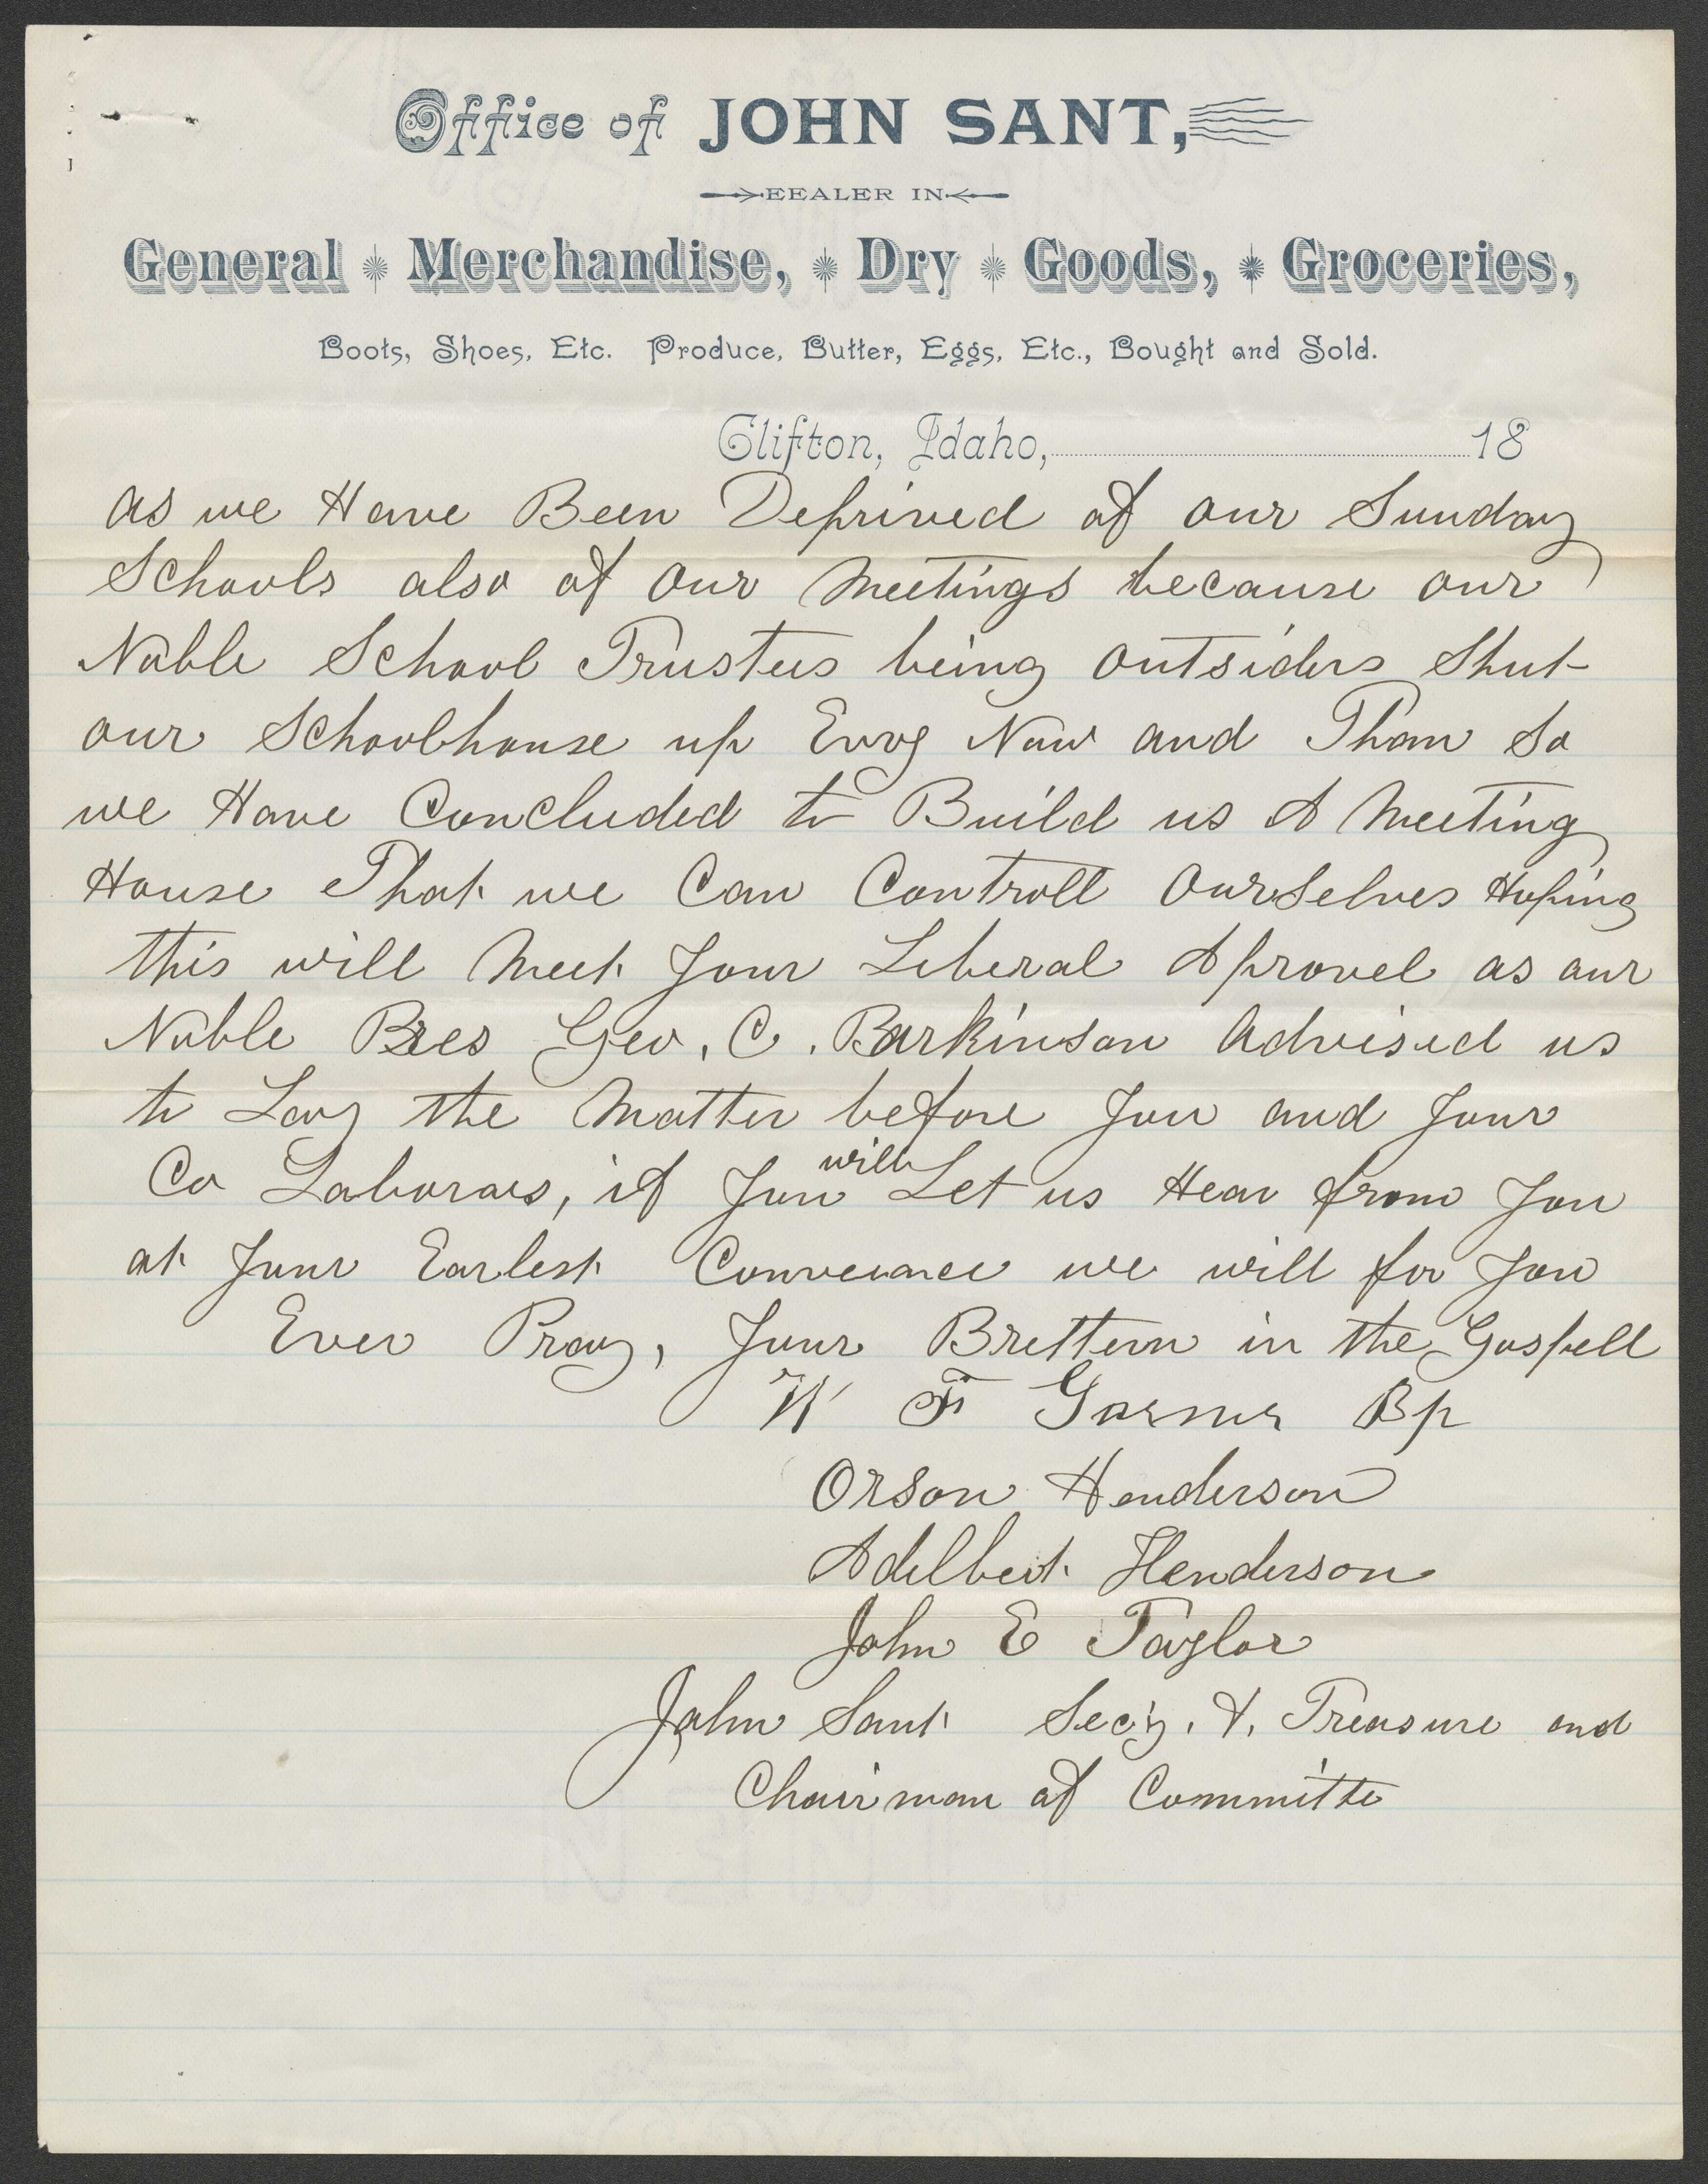 Office of JOHN SANT,
EEALER IN
General Merchandise, Dry Goods, Groceries,
Boots, Shoes, Etc. Produce, Butter, Eggs, Etc., Bought and Sold.
Clifton, Idaho, 18
as we Have Been Deprived of our Sunday
Schools also of our Meetings because our
Noble School Trustees being outsiders Shut
our Schoolhouse up Evry Now and Than So
we Have Concluded to Build us A Meeting
House That we Can Controll OurSelves Hoping
this will Meet Your Liberal Aprovel as our
Noble Pres Geo. C. Parkinson Advised us
to Lay the Matter before You and Your
Co Laborars, if You will Let us Hear from You
at Your Earlest Conveiance we will for You
Ever Pray, Your Brettern in the Gospell
W F Garner Bp
Orson Henderson
Adelbert Henderson
John E Taylor
John Sant Sec'y. & Treasure and
Chairman of Committe